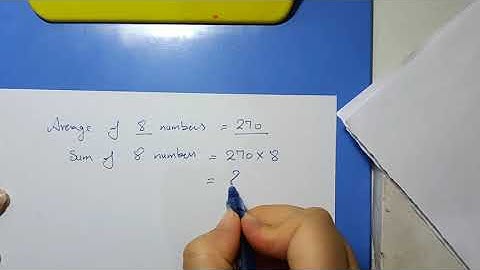 Average of 8 numbers = 270
Sum of 8 numbers = 270 × 8
= ?